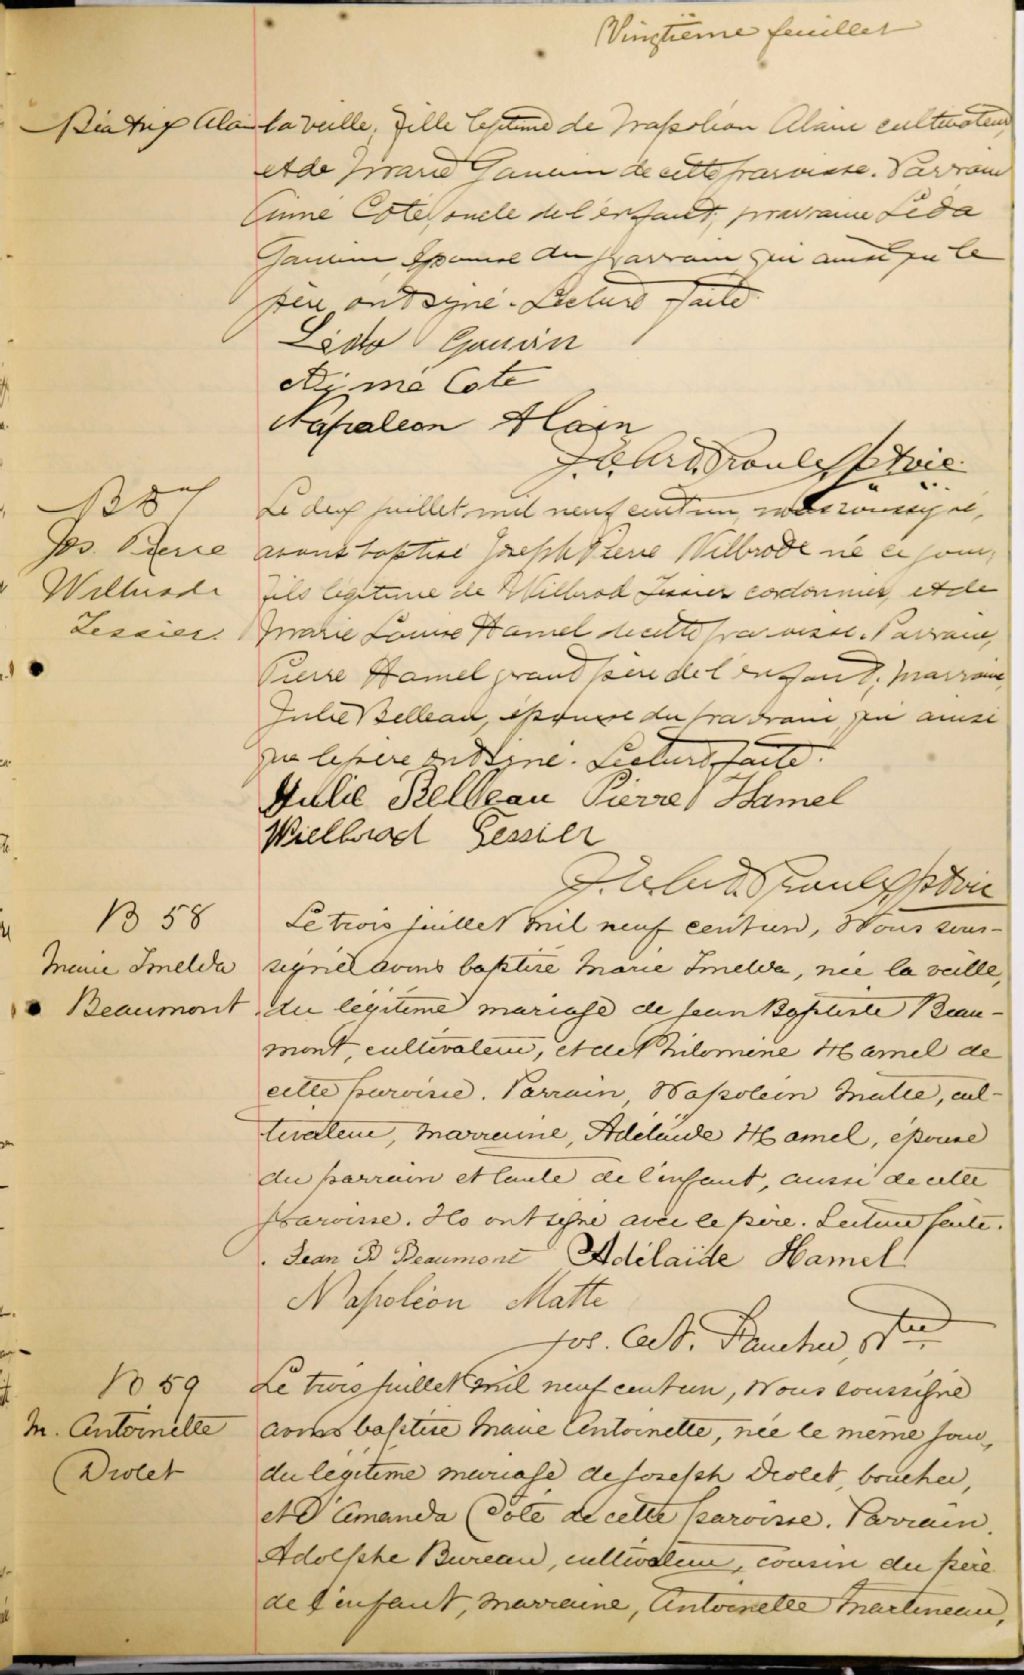 Vingtième feuillet
Béatrix Alain la veille, fille legitime de Napoléon Alain cultivateur,
et de Marie Gauvin de cette paroisse. Parrain
Aimé Coté, oncle de l'enfant, marraine Léda
Gauvin épouse du parrain qui ainsi que le
père, ont signé. Lecture faite.
Léda Gauvin
Aimé Cote
Napoleon Alain
Proulx ptre vic.
B 57
Jos. Pierre
Wilbrode
Tessier.
Le deux juillet mil neuf cent un, nous soussigné,
avons baptisé Joseph Pierre Wilbrode né ce jour,
fils légitime de Wilbrod Tessier cordonnier, et de
Marie Louise Hamel de cette paroisse. Parrain,
Pierre Hamel grand père de l'enfant; marraine,
Julie Belleau, épouse du parrain qui ainsi
que le père ont signé. Lecture faite.
Julie Belleau Pierre Hamel
Wiellbrod Tessier
Proulx ptre vic
B 58
Marie Imelda
Beaumont
Le trois juillet mil neuf cent un, Nous sous-
signé avons baptisé Marie Imelda, née la veille,
du légitime mariage de Jean Baptiste Beau-
mont, cultivateur, et de Philomène Hamel de
cette paroisse. Parrain, Napoléon Matte, cul-
tivateur, marraine, Adélaïde Hamel, épouse
du parrain et tante de l'enfant, aussi de cette
paroisse. Ils ont signé avec le père. Lecture faite.
Jean B Beaumont Adélaïde Hamel
Napoléon Matte
Jos. Faucher, Ptre
B 59
M. Antoinette
Drolet
Le trois juillet mil neuf cent un, Nous soussigné
avons baptisé Marie Antoinette, née le même jour,
du légitime mariage de Joseph Drolet, boucher,
et D'Amanda Côté de cette paroisse. Parrain,
Adolphe Bureau, cultivateur, cousin du père
de l'enfant, marraine, Antoinette Martineau,